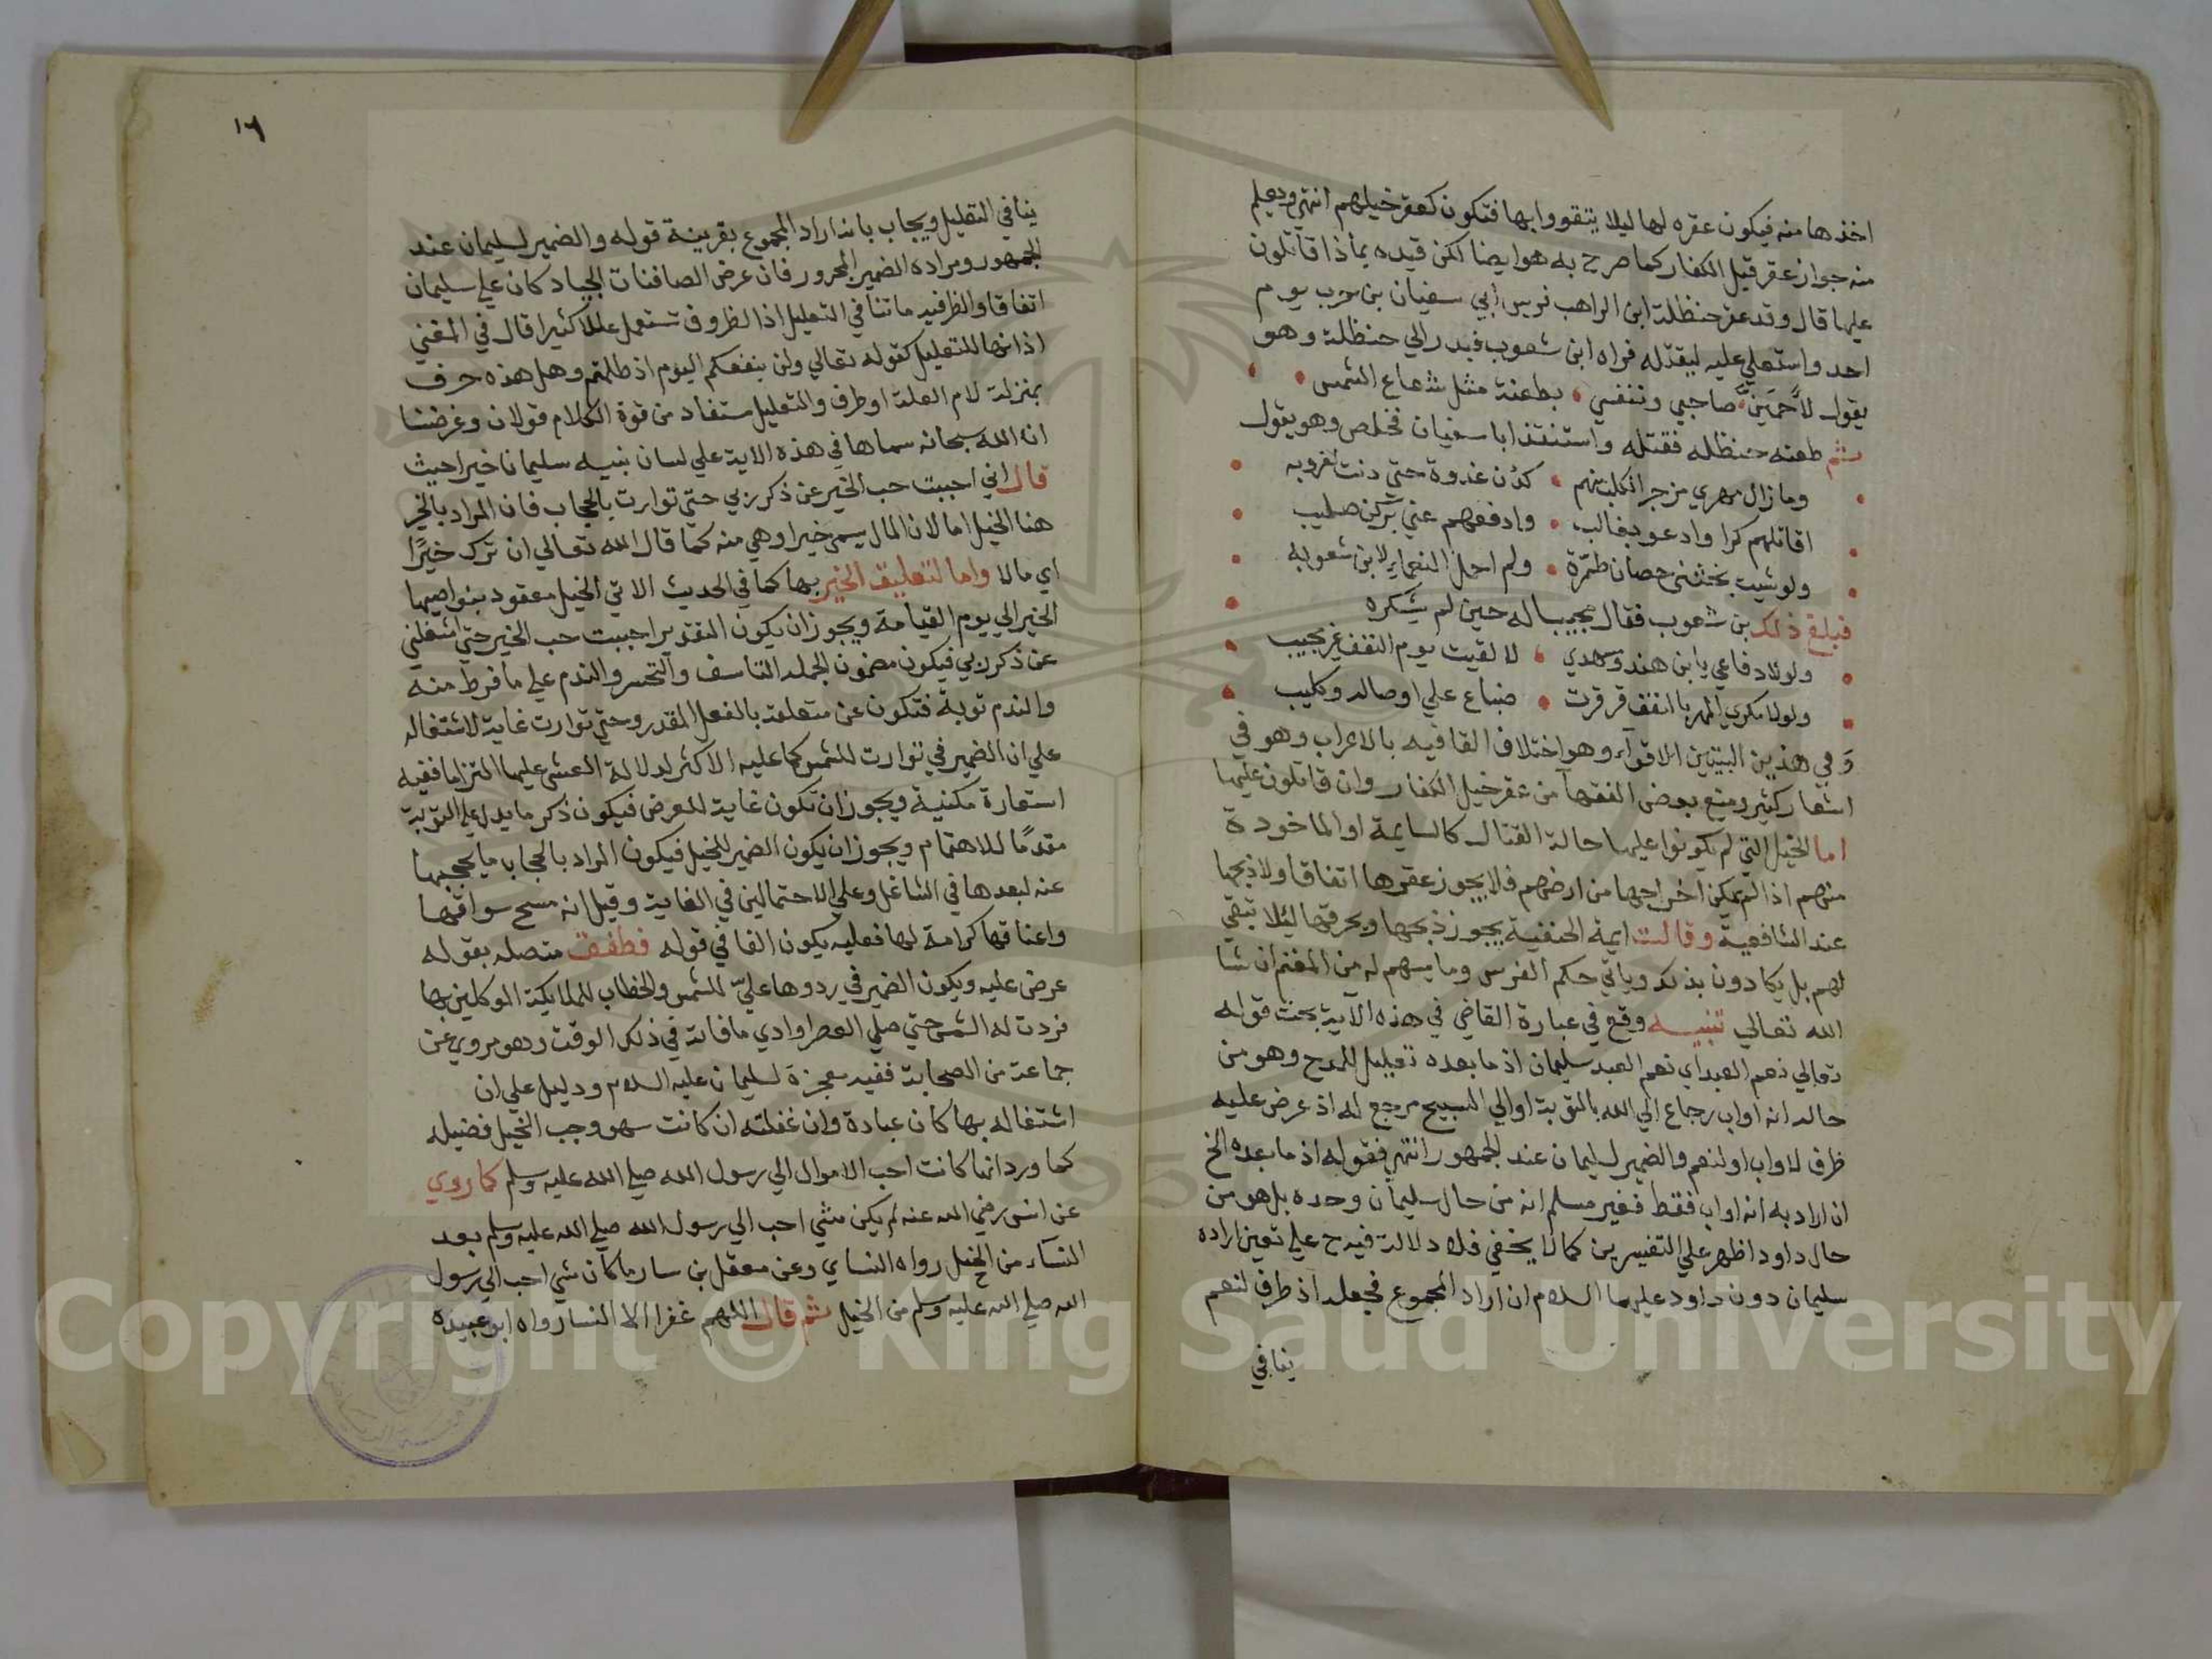 اخذها منه فيكون عقره لها ليلا يتقووا بها فتكون كعقر خيلهم انتهي ويعلم
منه جواز عقر قيل الكفار كما صرح به هو ايضا لكن قيده بما اذا قاتلون
عليها قال وقد عقر حنظلة ابن الراهب فرس ابي سفيان بن حرب يوم
احد واستعلي عليه ليقتله فراه ابن شعوب فبدر الي حنظلة وهو
يقول لأحمين صاحبي ونفسي • بطعنة مثل شعاع الشمس •
ثم طعنه حنظله فقتله واستنقذ ابا سفيان فخلص وهو يقول
وما زال مهري مزجر الكلب منهم • لدن غدوة حتي دنت لغروبه
اقاتلهم كرا وادعو بغالب • وادفعهم عني بركن صليب
ولو شيت نجتني حصان طمرة • ولم احمل النعماء لابن شعوبه
فبلغ ذلك بن شعوب فقال مجيبا له حين لم يشكره
ولولا دفاعي يا ابن هند ومهدي • لالقيت يوم النقف غير مجيب
ولولا مكري المهر بالنقف قرقرت • ضباع علي اوصاله وكليب
وفي هذين البيتين الاقوآء وهو اختلاف القافيه بالاعراب وهو في
اشعار كثير ومنع بعض الفقهآ من عقر خيل الكفار وان قاتلون عليها
اما الخيل التي لم يكونوا عليها حالة القتال كالسايمة او الماخودة
منهم اذا لم يمكن اخراجها من ارضهم فلا يجوز عقرها اتفاقا ولا ذبحها
عند الشافعية وقالت ايمة الحنفية يجوز ذبحها ويحرقها ليلا تبقي
لهم بل يكادون بذلك وياتي حكم الفرس وما يسهم له من المغنم ان شا
الله تعالي تنبيه وقع في عبارة القاضي في هذه الآية تحت قوله
تعالي نعم العبد اي نعم العبد سليمان اذ ما بعده تعليل للمدح وهو من
حاله انه اواب رجاع الي الله بالتوبة او الي التسبيح مرجع له اذ عرض عليه
ظرف لاواب او لنعم والضمير لسليمان عند الجمهور انتهي فقوله اذ ما بعده الخ
ان اراد به انه اواب فقط فغير مسلم انه من حال سليمان وحده بل هو من
حال داود اظهر علي التفسيرين كما لا يخفي فلا دلالة فيه ح علي تعين اراده
سليمان دون داود عليهما السلام ان اراد المجموع فجعله اذ ظرف لنعم
ينافي
١٦
ينافي التعليل ويجاب بانه اراد المجموع بقرينة قوله والضمير لسليمان عند
الجمهور ومراده الضمير المجرور فان عرض الصافنات الجياد كان علي سليمان
اتفاقا والظرفيه ما تنافي التعليل اذ الظروف تستعمل عللا كثيرا قال في المغني
اذ انها للتعليل كقوله تعالي ولن ينفعكم اليوم اذ ظلمتم وهل هذه حرف
بمنزلة لام العلة او ظرف والتعليل مستفاد من قوة الكلام قولان وغرضنا
ان الله سبحانه سماها في هذه الاية علي لسان نبيه سليمان خيرا حيث
قال اني احببت حب الخير عن ذكر ربي حتي توارت بالحجاب فان المراد بالخير
هنا الخيل اما لان المال يسمي خيرا وهي منه كما قال الله تعالي ان ترك خيرًا
اي مالا واما لتعليق الخير بها كما في الحديث الاتي الخيل معقود بنواصيها
الخير الي يوم القيامة ويجوز ان يكون التقدير احببت حب الخير حتي اشغلني
عن ذكر ربي فيكون مضمون الجملة التاسف والتحسر والندم علي ما فرط منه
والندم توبة فتكون عن متعلقة بالفعل المقدر وحتي توارت غاية لاشتغاله
علي ان الضمير في توارت للشمس كما عليه الاكثر لدلالة العشي عليها التزاما ففيه
استعارة مكنية ويجوز ان تكون غاية للعرض فيكون ذكر ما يدل علي التوبة
مقدمًا للاهتمام ويجوز ان يكون الضمير للخيل فيكون المراد بالحجاب ما يحجبها
عنه لبعدها في الشاغل وعلي الاحتمالين في الغاية وقيل انه مسح سواقها
واعناقها كرامة لها فعليه يكون الفا في قوله فطفق متصله بقوله
عرض عليه ويكون الضمير في ردوها عليّ للشمس والخطاب للملايكة الموكلين بها
فردت له الشمس حتي صلي العصر اوادي ما فاته في ذلك الوقت وهو مروي عن
جماعة من الصحابة ففيه معجزة لسليمان عليه السلام ودليل علي ان
اشتغاله بها كان عبادة وان غفلته ان كانت سهو وجب الخيل فضيله
كما ورد انها كانت احب الاموال الي رسول الله صلي الله عليه وسلم كما روي
عن انس رضي الله عنه لم يكن شي احب الي رسول الله صلي الله عليه وسلم بعد
النسآء من الخيل رواه النساي وعن معقل بن سار ما كان شي احب الي رسول
الله صلي الله عليه وسلم من الخيل ثم قال اللهم غفرا الا النسا رواه ابو عبيده
Copyright © King Saud University